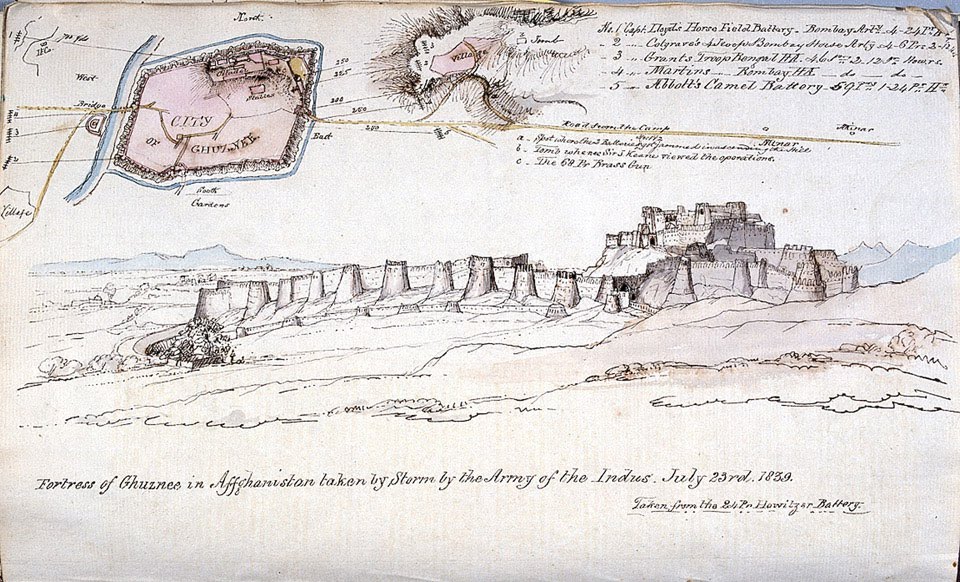 North
West
Bridge
Village
Citadel
Stables
CITY
OF
GHUZNEE
East
South
Gardens
Village
Tomb
250
325
200
250
240
No. 1 Capt. Lloyd's Horse Field Battery - Bombay Arty. 4 - 24 Pr. Hrs
2 Colgrave's Troop Bombay Horse Arty 4 - 6 Prs. 2 - 12
3 Grant's Troop Bengal HA. 4 6 Prs. 2. 12 Prs. Hours.
4 Martins Bombay HA. do do
5 Abbott's Camel Battery 5 9 Prs. 1 - 24 Pr. Hr.
Road from the Camp
Minar
Minar
a. Spot where the 2 Batteries got jammed in ascending the Hill
b. Tomb where Sir J. Keane viewed the operations.
c. The 68 Pr Brass Gun
Fortress of Ghuznee in Affghanistan taken by Storm by the Army of the Indus. July 23rd. 1839.
Taken from the 24 Pr. Howitzer Battery.